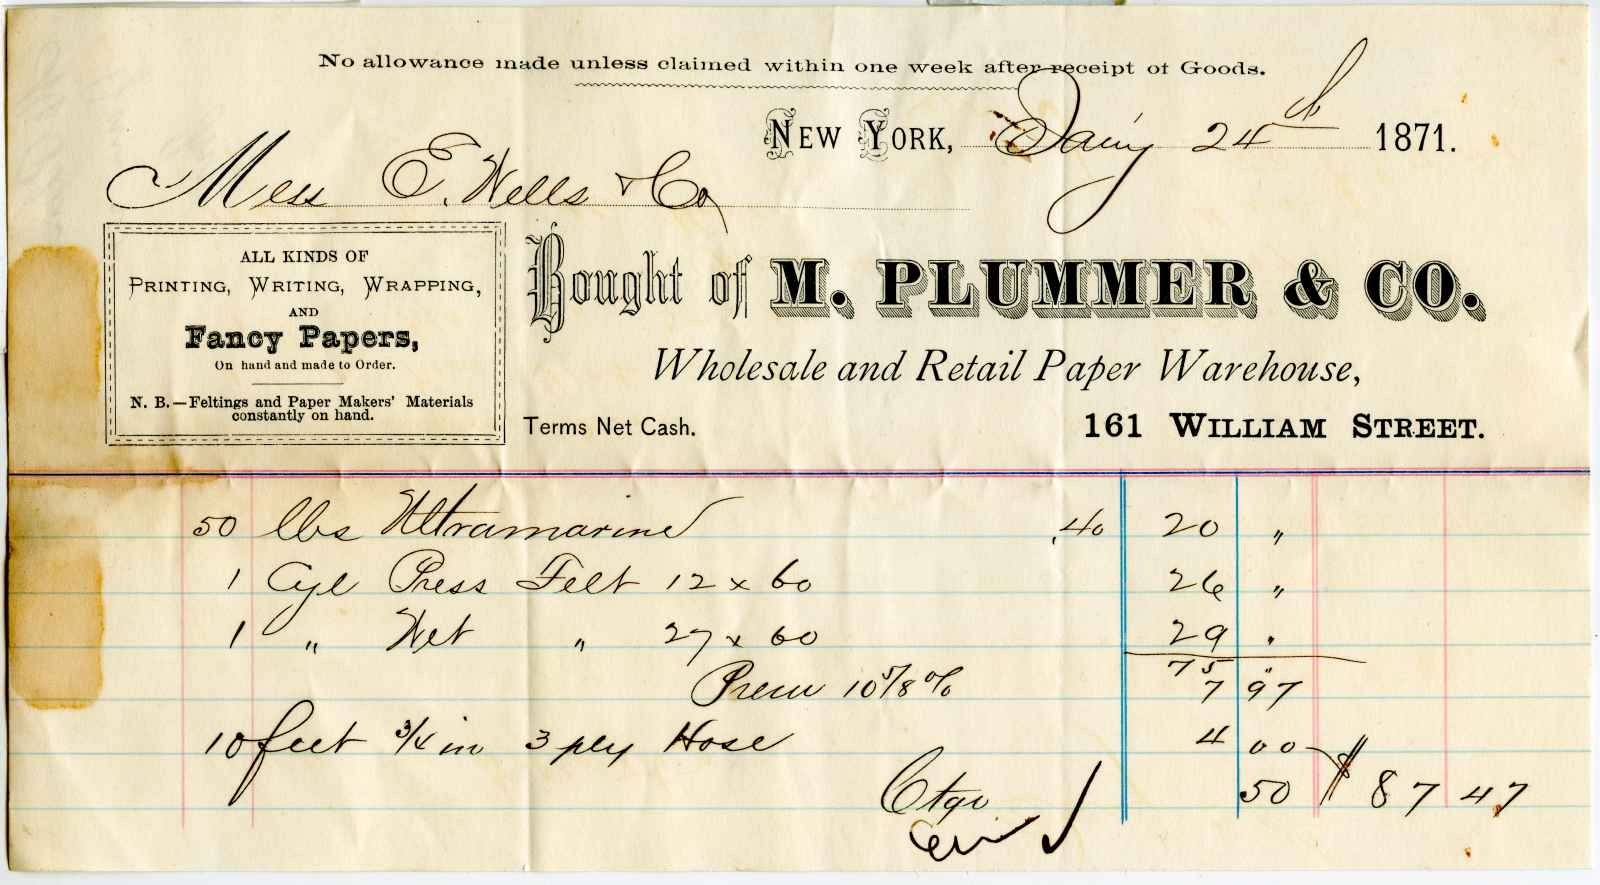 No allowance made unless claimed within one week after receipt of Goods.
New York, Jany 24th 1871.
Mess E. Wells & Co
ALL KINDS OF
Printing, Writing, Wrapping,
AND
Fancy Papers,
On hand and made to Order.
N. B.—Feltings and Paper Makers' Materials
constantly on hand.
Bought of M. PLUMMER & CO.
Wholesale and Retail Paper Warehouse,
Terms Net Cash. 161 William Street.
50 lbs Ultramarine .40 20 "
1 Cyl Press Felt 12 x 60 26 "
1 " Wet " 27 x 60 29 "
75 "
Prem 10 5/8 % 7 97
10 feet 3/4 in 3 ply Hose 4 00
Ctge 50 $ 87 47